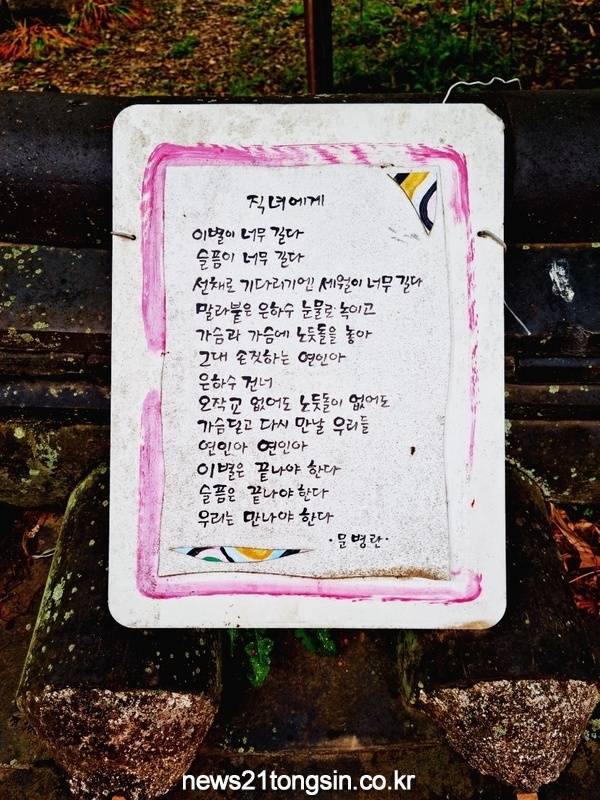 직녀에게
이별이 너무 길다
슬픔이 너무 길다
선채로 기다리기엔 세월이 너무 길다
말라붙은 은하수 눈물로 녹이고
가슴과 가슴에 노둣돌을 놓아
그대 손짓하는 연인아
은하수 건너
오작교 없어도 노둣돌이 없어도
가슴딛고 다시 만날 우리들
연인아 연인아
이별은 끝나야 한다
슬픔은 끝나야 한다
우리는 만나야 한다
·문병란·
news21tongsin.co.kr